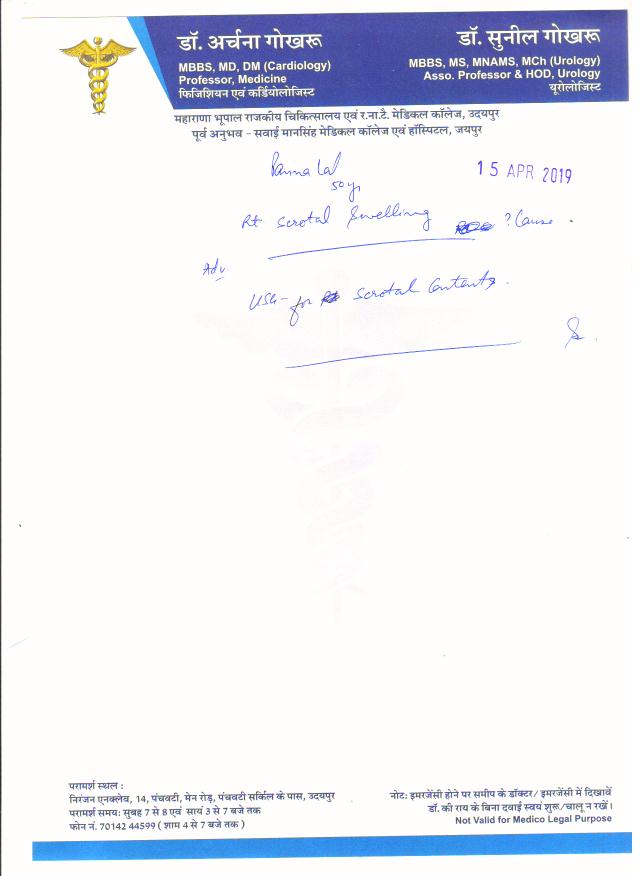 डॉ. अर्चना गोखरू
MBBS, MD, DM (Cardiology)
Professor, Medicine
फिजिशियन एवं कर्डियोलोजिस्ट
डॉ. सुनील गोखरू
MBBS, MS, MNAMS, MCh (Urology)
Asso. Professor & HOD, Urology
यूरोलोजिस्ट
महाराणा भूपाल राजकीय चिकित्सालय एवं र.ना.टै. मेडिकल कॉलेज, उदयपुर
पूर्व अनुभव - सवाई मानसिंह मेडिकल कॉलेज एवं हॉस्पिटल, जयपुर
Panna Lal
50 yr
15 APR 2019
Rt Scrotal Swelling ? Cause .
Adv
USG - for Scrotal Contents .
परामर्श स्थल :
निरंजन एनक्लेव, 14, पंचवटी, मेन रोड़, पंचवटी सर्किल के पास, उदयपुर
परामर्श समय: सुबह 7 से 8 एवं सायं 3 से 7 बजे तक
फोन नं. 70142 44599 ( शाम 4 से 7 बजे तक )
नोट: इमरजेंसी होने पर समीप के डॉक्टर/ इमरजेंसी में दिखावें
डॉ. की राय के बिना दवाई स्वयं शुरू/चालू न रखें।
Not Valid for Medico Legal Purpose